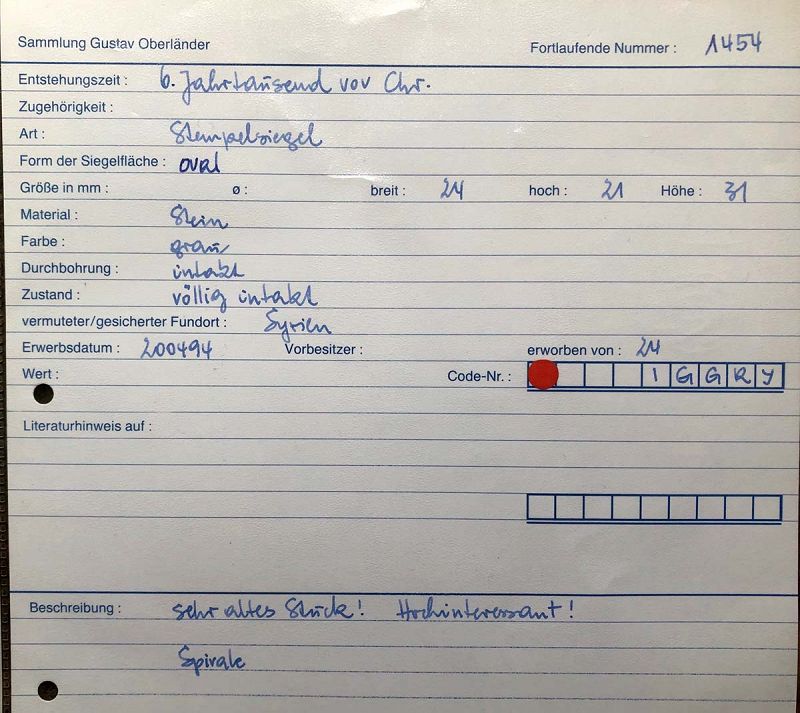 Sammlung Gustav Oberländer Fortlaufende Nummer : 1454
Entstehungszeit : 6. Jahrtausend vor Chr.
Zugehörigkeit :
Art : Stempelsiegel
Form der Siegelfläche : oval
Größe in mm : ø : breit : 24 hoch : 21 Höhe : 31
Material : Stein
Farbe : grau
Durchbohrung : intakt
Zustand : völlig intakt
vermuteter/gesicherter Fundort : Syrien
Erwerbsdatum : 200494 Vorbesitzer : erworben von : 24
Wert : Code-Nr. : I G G R Y
Literaturhinweis auf :
Beschreibung : sehr altes Stück! Hochinteressant!
Spirale